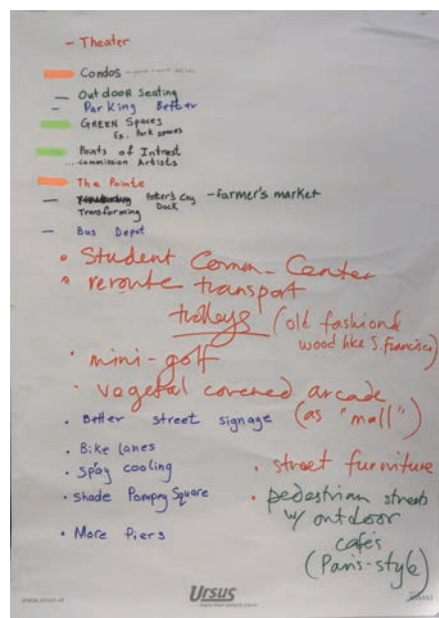 - Theater
Condos
- Outdoor Seating
- Parking Better
GREEN Spaces
Ex. Park spaces
Points of Intrest
... commission Artists
The Pointe
- Potter's Cay - farmer's market
Transforming Dock
- Bus Depot
• Student Comm. Center
• reroute transport
trolleys (old fashiond
wood like S. Francisco)
• mini-golf
• vegetal covered arcade
(as "mall")
• Better street signage
• Bike lanes
• Spay cooling
• street furniture
• shade Pompey Square
• pedestrian streets
w/ outdoor
cafés
(Paris-style)
• More Piers
www.ursus.at
Ursus